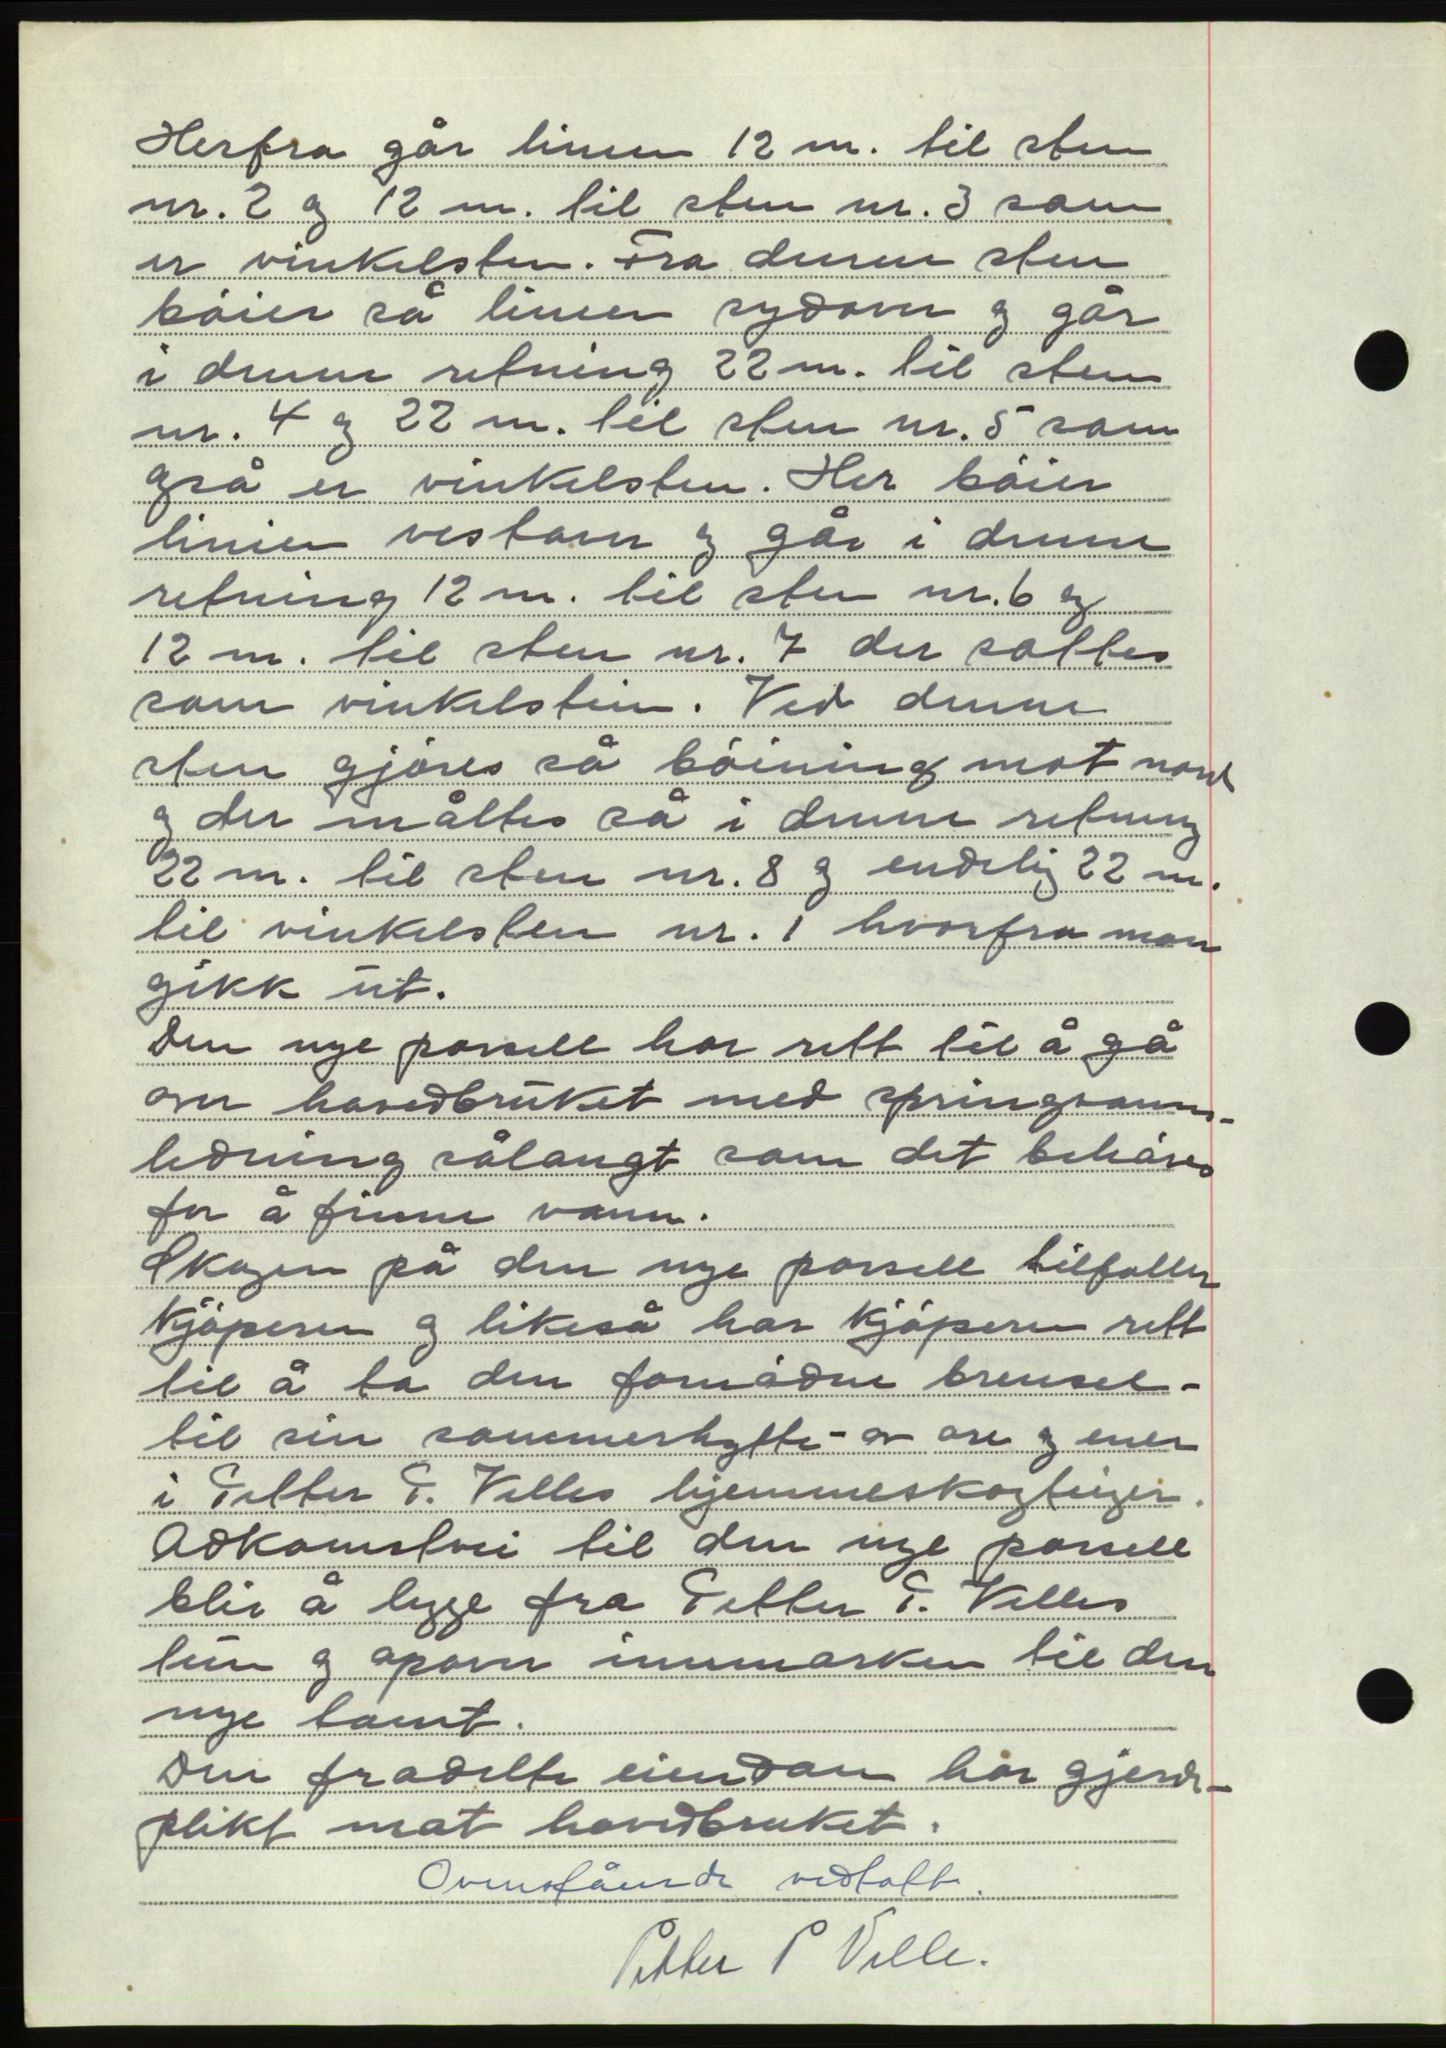 Herfra går linien 12 m. til sten
nr. 2 og 12 m. til sten nr. 3 som
er vinkelsten. Fra denne sten
bóier så linien sydover og går
i denne retning 22 m. til sten
nr. 4 og 22 m. til sten nr. 5 som
også er vinkelsten. Her bóier
linien vestover og går i denne
retning 12 m. til sten nr. 6 og
12 m. til sten nr. 7 der sattes
som vinkelstein. Ved denne
sten gjóres så bóining mot nord
og der måltes så i denne retning
22 m. til sten nr. 8 og endelig 22 m.
til vinkelsten nr. 1 hvorfra man
gikk ut.
Den nye parsell har rett til å gå
over hovedbruket med springvanns-
ledning sålangt som det behóves
for å finne vann.
Skogen på den nye parsell tilfaller
kjóperen og likeså har kjóperen rett
til å ta den fornódne brensel -
til sin sommerhytte - av or og ener
i Petter P. Velles hjemmeskogteiger.
Adkomstvei til den nye parsell
blir å legge fra Petter P. Velles
tun og opover innmarken til den
nye tomt.
Den fradelte eiendom har gjerde-
plikt mot hovedbruket.
Ovenstående vedtatt.
Petter P Velle.